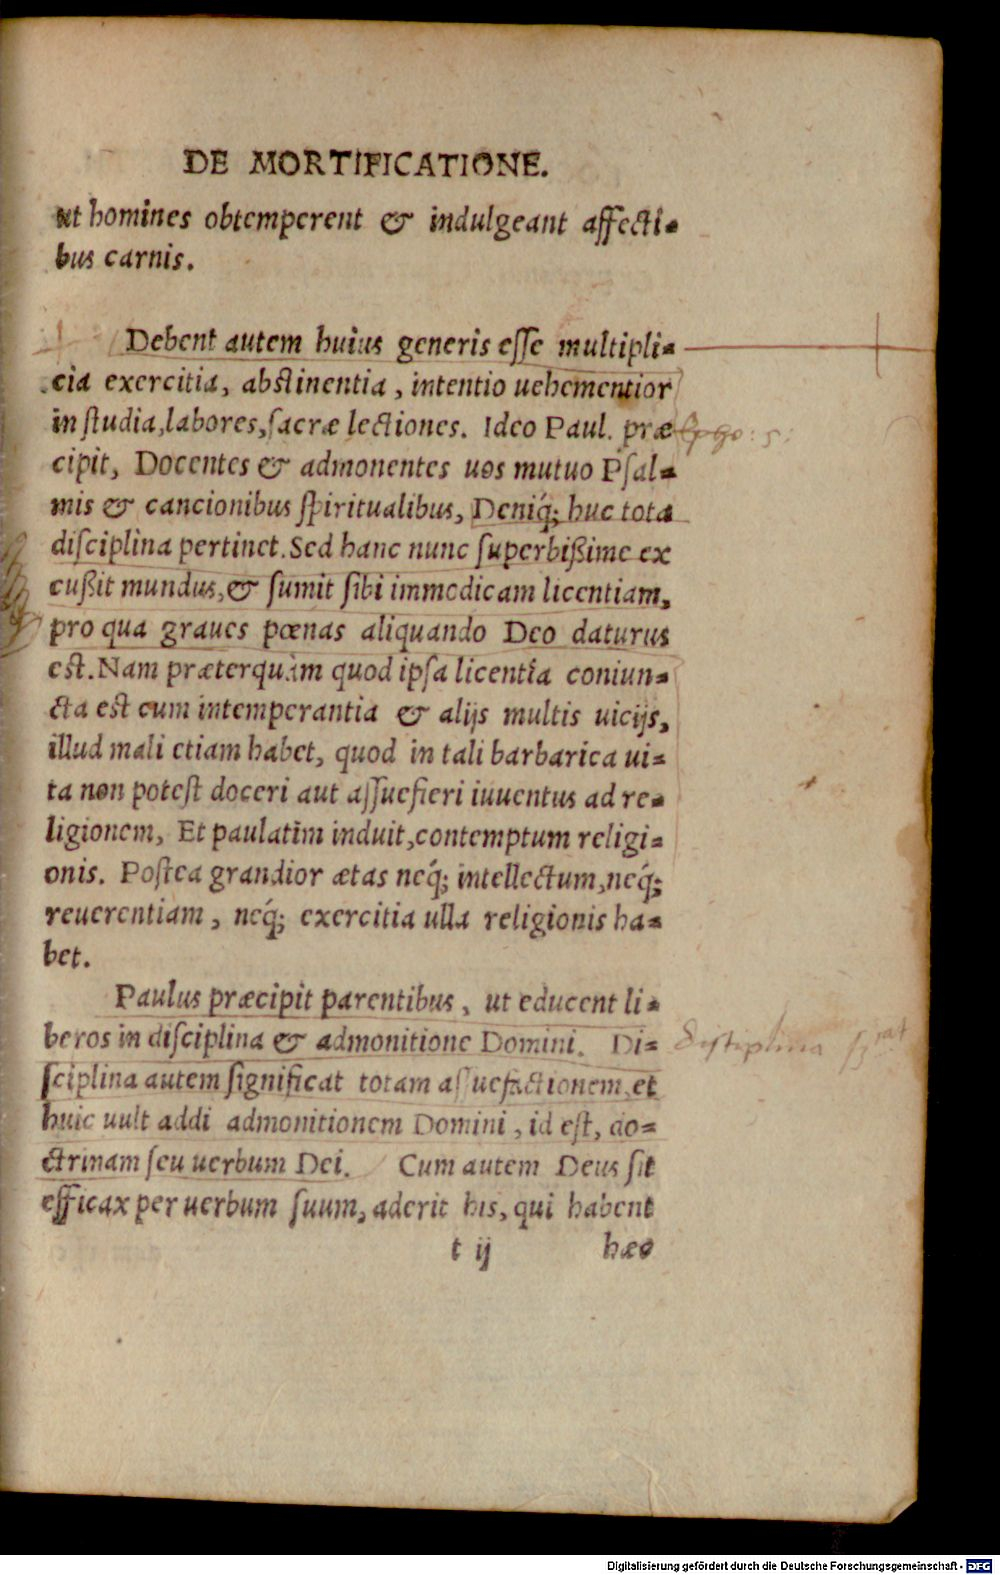 DE MORTIFICATIONE.
ut homines obtemperent & indulgeant affecti=
bus carnis.
Debent autem huius generis esse multipli=
cia exercitia, abstinentia, intentio uehementior
in studia, labores, sacræ lectiones. Ideo Paul. præ
Ephe: 5:
cipit, Docentes & admonentes uos mutuo Psal=
mis & cancionibus spiritualibus, Deniq́; huc tota
disciplina pertinet. Sed hanc nunc superbißime ex
cußit mundus, & sumit sibi immodicam licentiam,
pro qua graues pœnas aliquando Deo daturus
est. Nam præterquàm quod ipsa licentia coniun=
cta est cum intemperantia & alijs multis uicijs,
illud mali etiam habet, quod in tali barbarica ui=
ta non potest doceri aut assuefieri iuuentus ad re=
ligionem, Et paulatim induit, contemptum religi=
onis. Postea grandior ætas neq́; intellectum, neq́;
reuerentiam, neq́; exercitia ulla religionis ha=
bet.
Paulus præcipit parentibus, ut educent li=
beros in disciplina & admonitione Domini. Di=
Disciplina
sciplina autem significat totam assuefactionem, et
huic uult addi admonitionem Domini, id est, do=
ctrinam seu uerbum Dei. Cum autem Deus sit
efficax per uerbum suum, aderit his, qui habent
t ij hæc
Digitalisierung gefördert durch die Deutsche Forschungsgemeinschaft - DFG